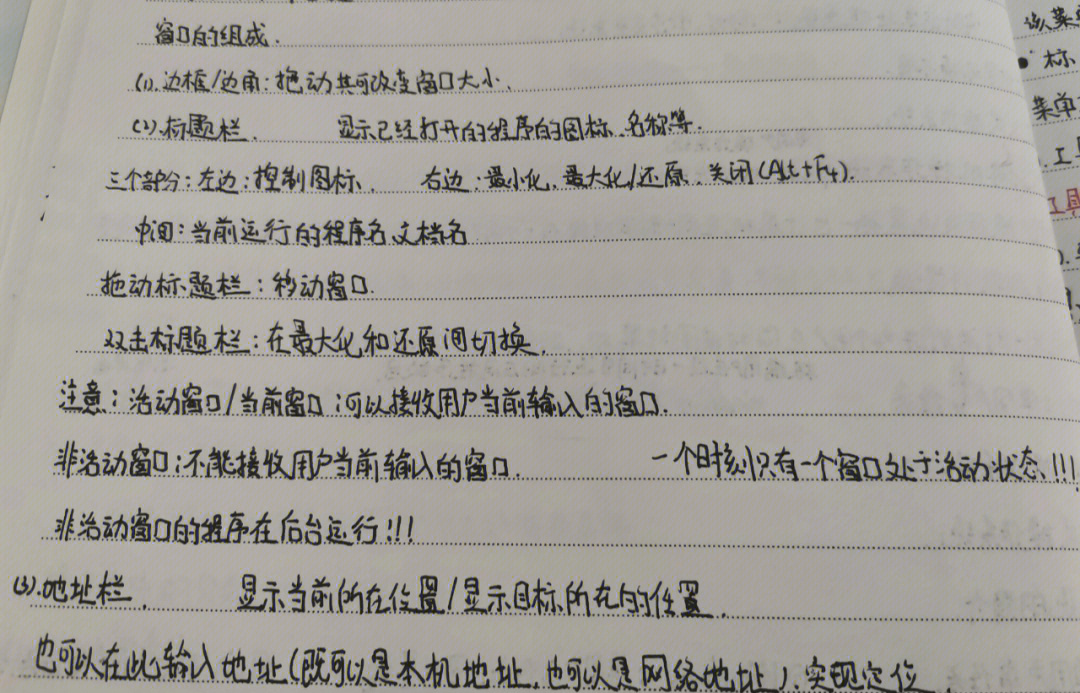 窗口的组成.
(1).边框/边角:拖动其可改变窗口大小.
(2).标题栏. 显示已经打开的程序的图标、名称等.
三个部分:左边:控制图标. 右边:最小化,最大化/还原,关闭(Alt+F4).
中间:当前运行的程序名文档名
拖动标题栏:移动窗口.
双击标题栏:在最大化和还原间切换.
注意:活动窗口/当前窗口:可以接收用户当前输入的窗口.
非活动窗口:不能接收用户当前输入的窗口. 一个时刻只有一个窗口处于活动状态!!!
非活动窗口的程序在后台运行!!!
(3).地址栏. 显示当前所在位置/显示目标所在的位置.
也可以在此输入地址(既可以是本机地址,也可以是网络地址),实现定位.
标
菜单
工
工具